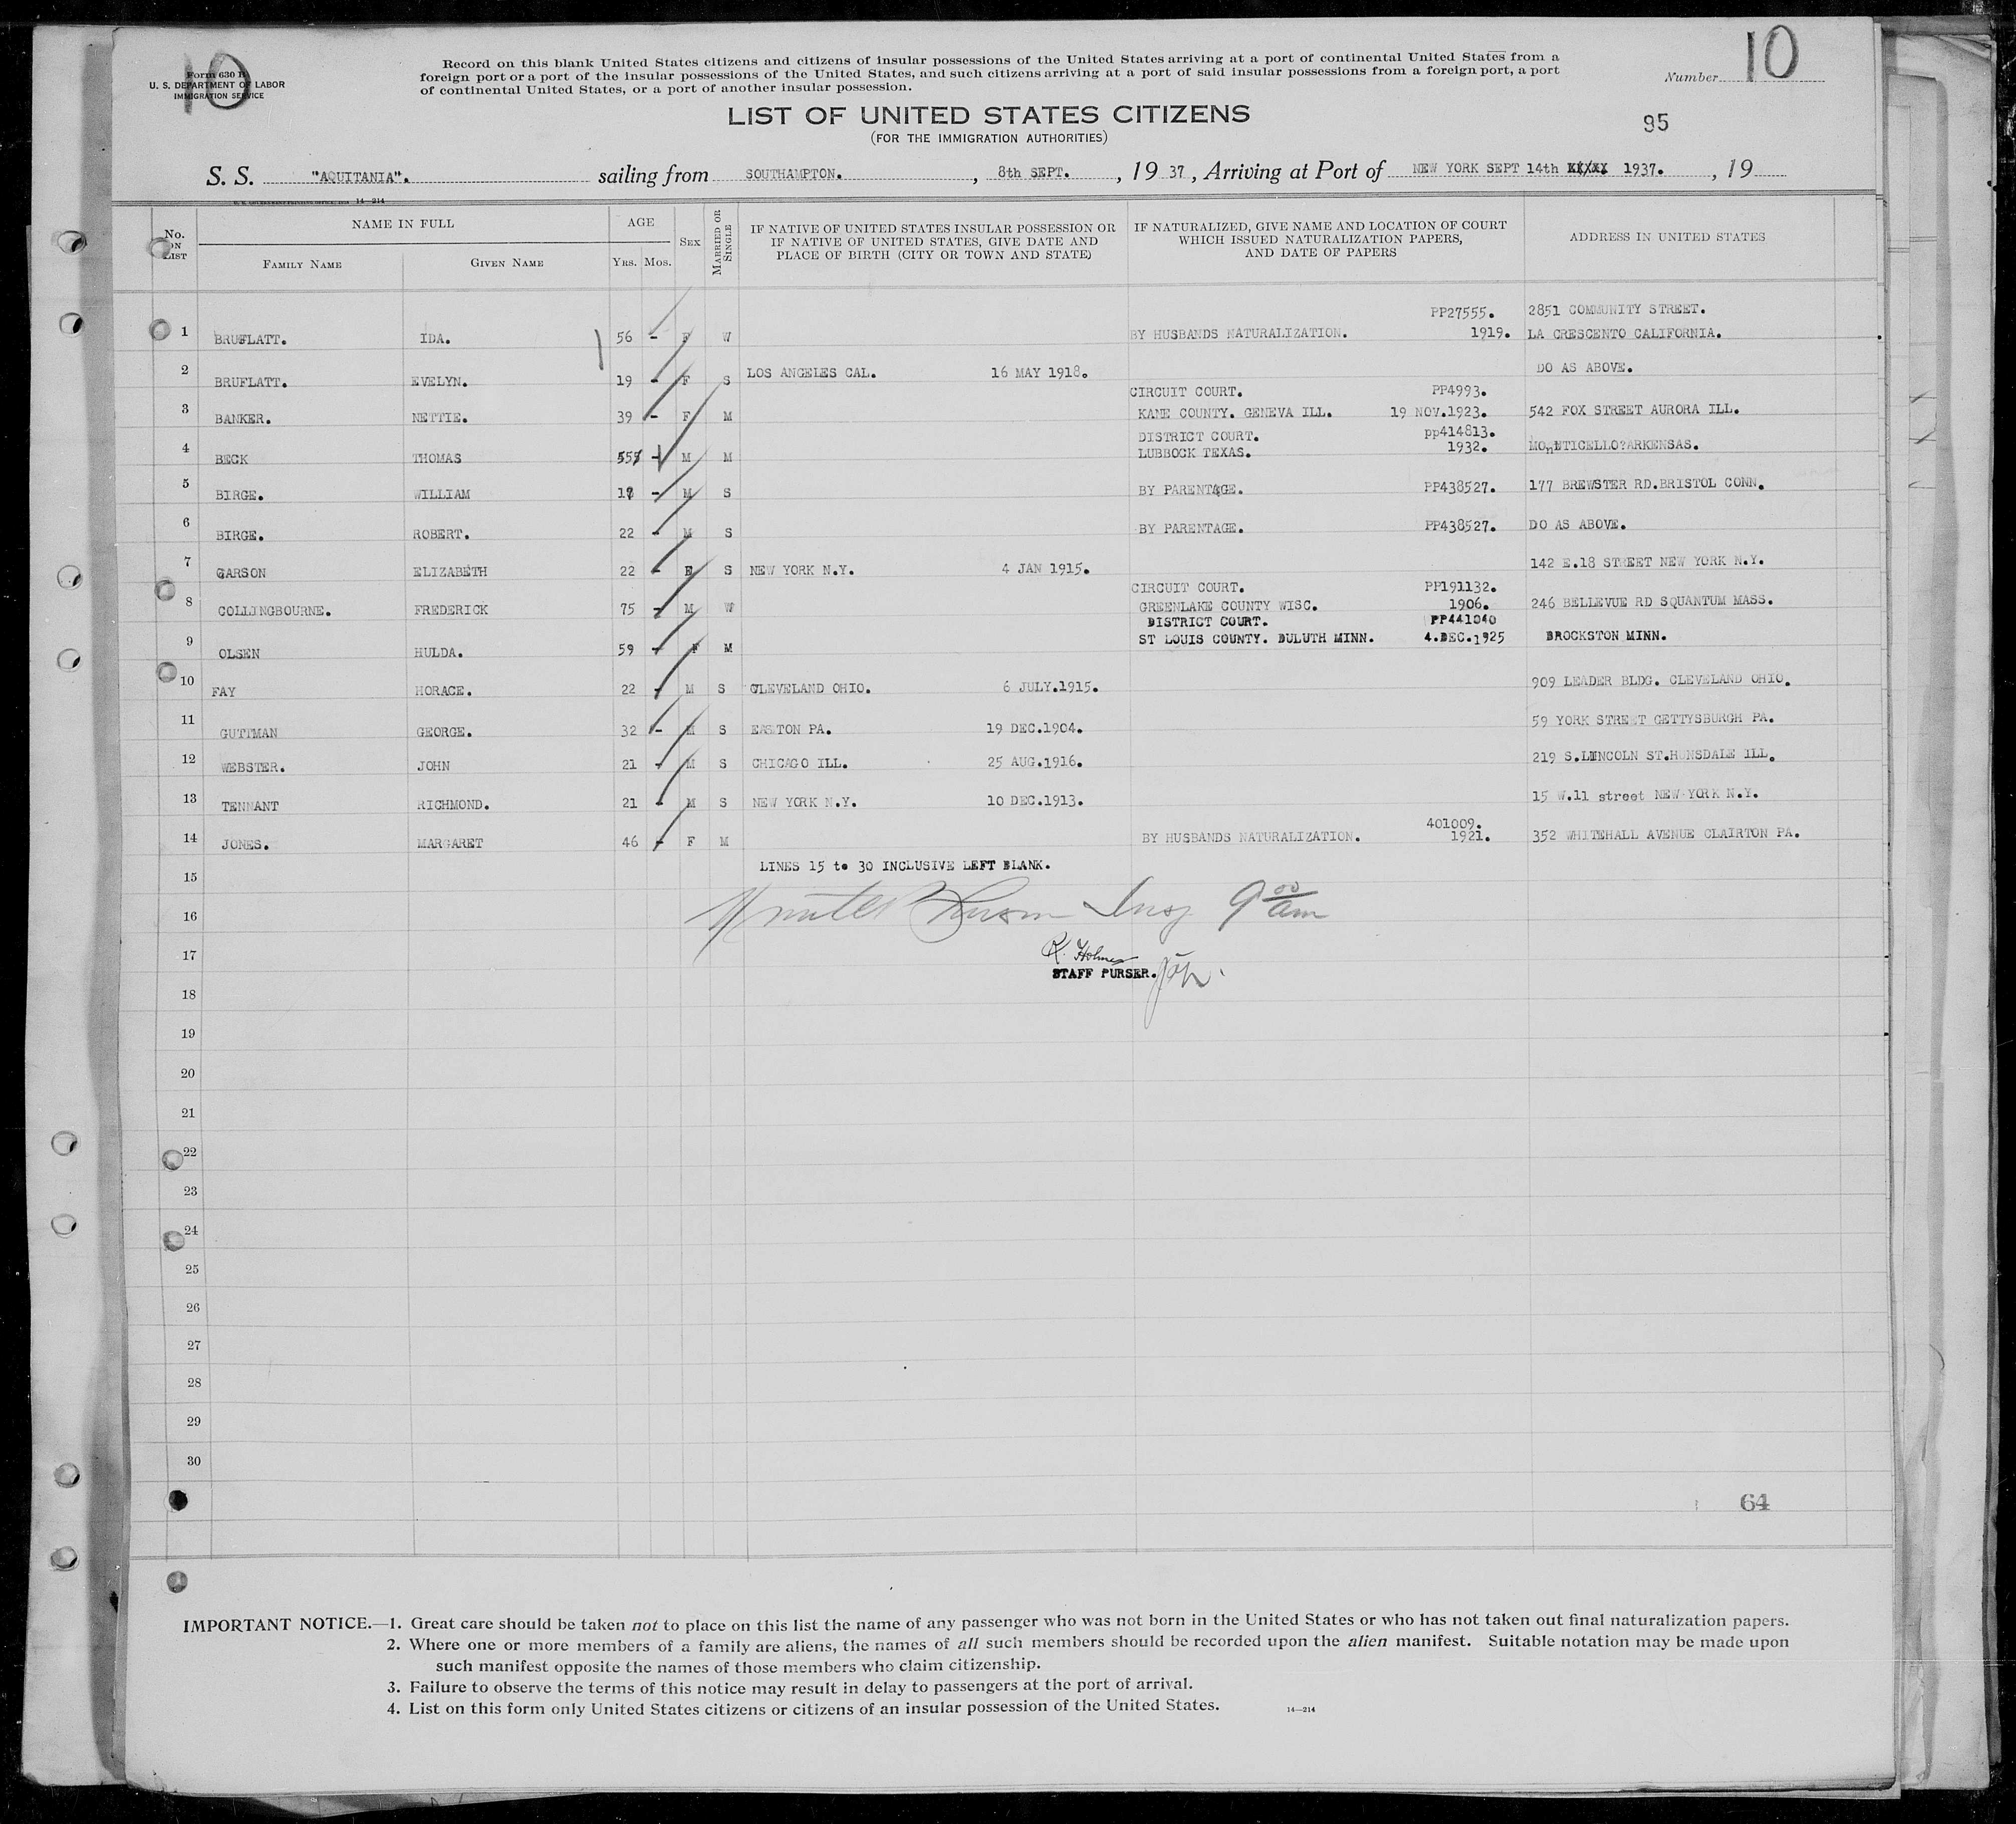 10
Form 630 B
U. S. DEPARTMENT OF LABOR
IMMIGRATION SERVICE
Record on this blank United States citizens and citizens of insular possessions of the United States arriving at a port of continental United States from a
foreign port or a port of the insular possessions of the United States, and such citizens arriving at a port of said insular possessions from a foreign port, a port
of continental United States, or a port of another insular possession.
Number 10
LIST OF UNITED STATES CITIZENS
(FOR THE IMMIGRATION AUTHORITIES)
95
S. S. "AQUITANIA". sailing from SOUTHAMPTON. , 8th SEPT. , 19 37 , Arriving at Port of NEW YORK SEPT 14th 1937. , 19
14—214
No. ON LIST
NAME IN FULL
FAMILY NAME
GIVEN NAME
AGE
YRS. MOS.
SEX
MARRIED OR SINGLE
IF NATIVE OF UNITED STATES INSULAR POSSESSION OR
IF NATIVE OF UNITED STATES, GIVE DATE AND
PLACE OF BIRTH (CITY OR TOWN AND STATE)
IF NATURALIZED, GIVE NAME AND LOCATION OF COURT
WHICH ISSUED NATURALIZATION PAPERS,
AND DATE OF PAPERS
ADDRESS IN UNITED STATES
PP27555. 2851 COMMUNITY STREET.
1 BRUFLATT. IDA. 56 - F W BY HUSBANDS NATURALIZATION. 1919. LA CRESCENTO CALIFORNIA.
2 BRUFLATT. EVELYN. 19 - F S LOS ANGELES CAL. 16 MAY 1918. DO AS ABOVE.
CIRCUIT COURT. PP4993.
3 BANKER. NETTIE. 39 - F M KANE COUNTY. GENEVA ILL. 19 NOV.1923. 542 FOX STREET AURORA ILL.
DISTRICT COURT. pp414813.
4 BECK THOMAS 55 - M M LUBBOCK TEXAS. 1932. MOnTICELLO?ARKENSAS.
5 BIRGE. WILLIAM - M S BY PARENTAGE. PP438527. 177 BREWSTER RD.BRISTOL CONN.
6 BIRGE. ROBERT. 22 - M S BY PARENTAGE. PP438527. DO AS ABOVE.
7 GARSON ELIZABETH 22 - F S NEW YORK N.Y. 4 JAN 1915. 142 E.18 STREET NEW YORK N.Y.
CIRCUIT COURT. PP191132.
8 COLLINGBOURNE. FREDERICK 75 - M W GREENLAKE COUNTY WISC. 1906. 246 BELLEVUE RD SQUANTUM MASS.
DISTRICT COURT. PP441040
9 OLSEN HULDA. 59 - F M ST LOUIS COUNTY. DULUTH MINN. 4.DEC.1925 BROCKSTON MINN.
10 FAY HORACE. 22 - M S CLEVELAND OHIO. 6 JULY.1915. 909 LEADER BLDG. CLEVELAND OHIO.
11 GUTTMAN GEORGE. 32 - M S EASTON PA. 19 DEC.1904. 59 YORK STREET GETTYSBURGH PA.
12 WEBSTER. JOHN 21 - M S CHICAGO ILL. 25 AUG.1916. 219 S.LINCOLN ST.HUNSDALE ILL.
13 TENNANT RICHMOND. 21 - M S NEW YORK N.Y. 10 DEC.1913. 15 W.11 street NEW YORK N.Y.
401009.
14 JONES. MARGARET 46 - F M BY HUSBANDS NATURALIZATION. 1921. 352 WHITEHALL AVENUE CLAIRTON PA.
LINES 15 to 30 INCLUSIVE LEFT BLANK.
15
16 Insp 9 00 am
17 R. Holmes
STAFF PURSER.
18
19
20
21
22
23
24
25
26
27
28
29
30
64
IMPORTANT NOTICE.—1. Great care should be taken not to place on this list the name of any passenger who was not born in the United States or who has not taken out final naturalization papers.
2. Where one or more members of a family are aliens, the names of all such members should be recorded upon the alien manifest. Suitable notation may be made upon
such manifest opposite the names of those members who claim citizenship.
3. Failure to observe the terms of this notice may result in delay to passengers at the port of arrival.
4. List on this form only United States citizens or citizens of an insular possession of the United States.
14—214